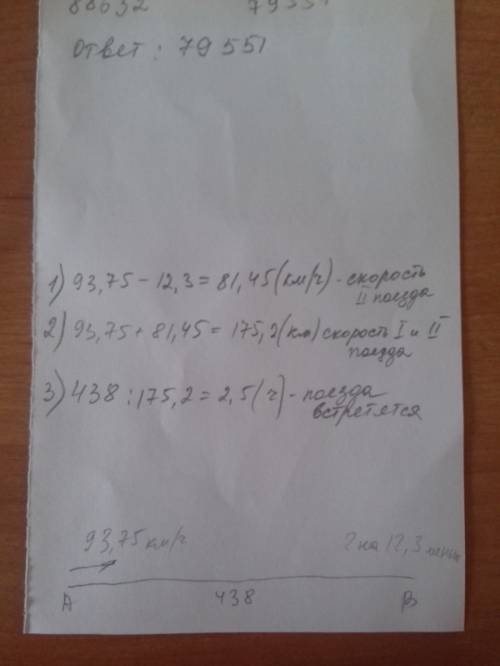 88632 79551
Ответ: 79 551
1) 93,75 - 12,3 = 81,45 (км/ч) - скорость
II поезда
2) 93,75 + 81,45 = 175,2 (км) скорость I и II
поезда
3) 438 : 175,2 = 2,5 (ч) - поезда
встретятся
93,75 км/ч ? на 12,3 меньше
A 438 B